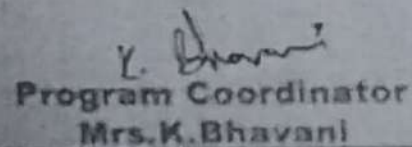 K. Bhavani
Program Coordinator
Mrs.K.Bhavani